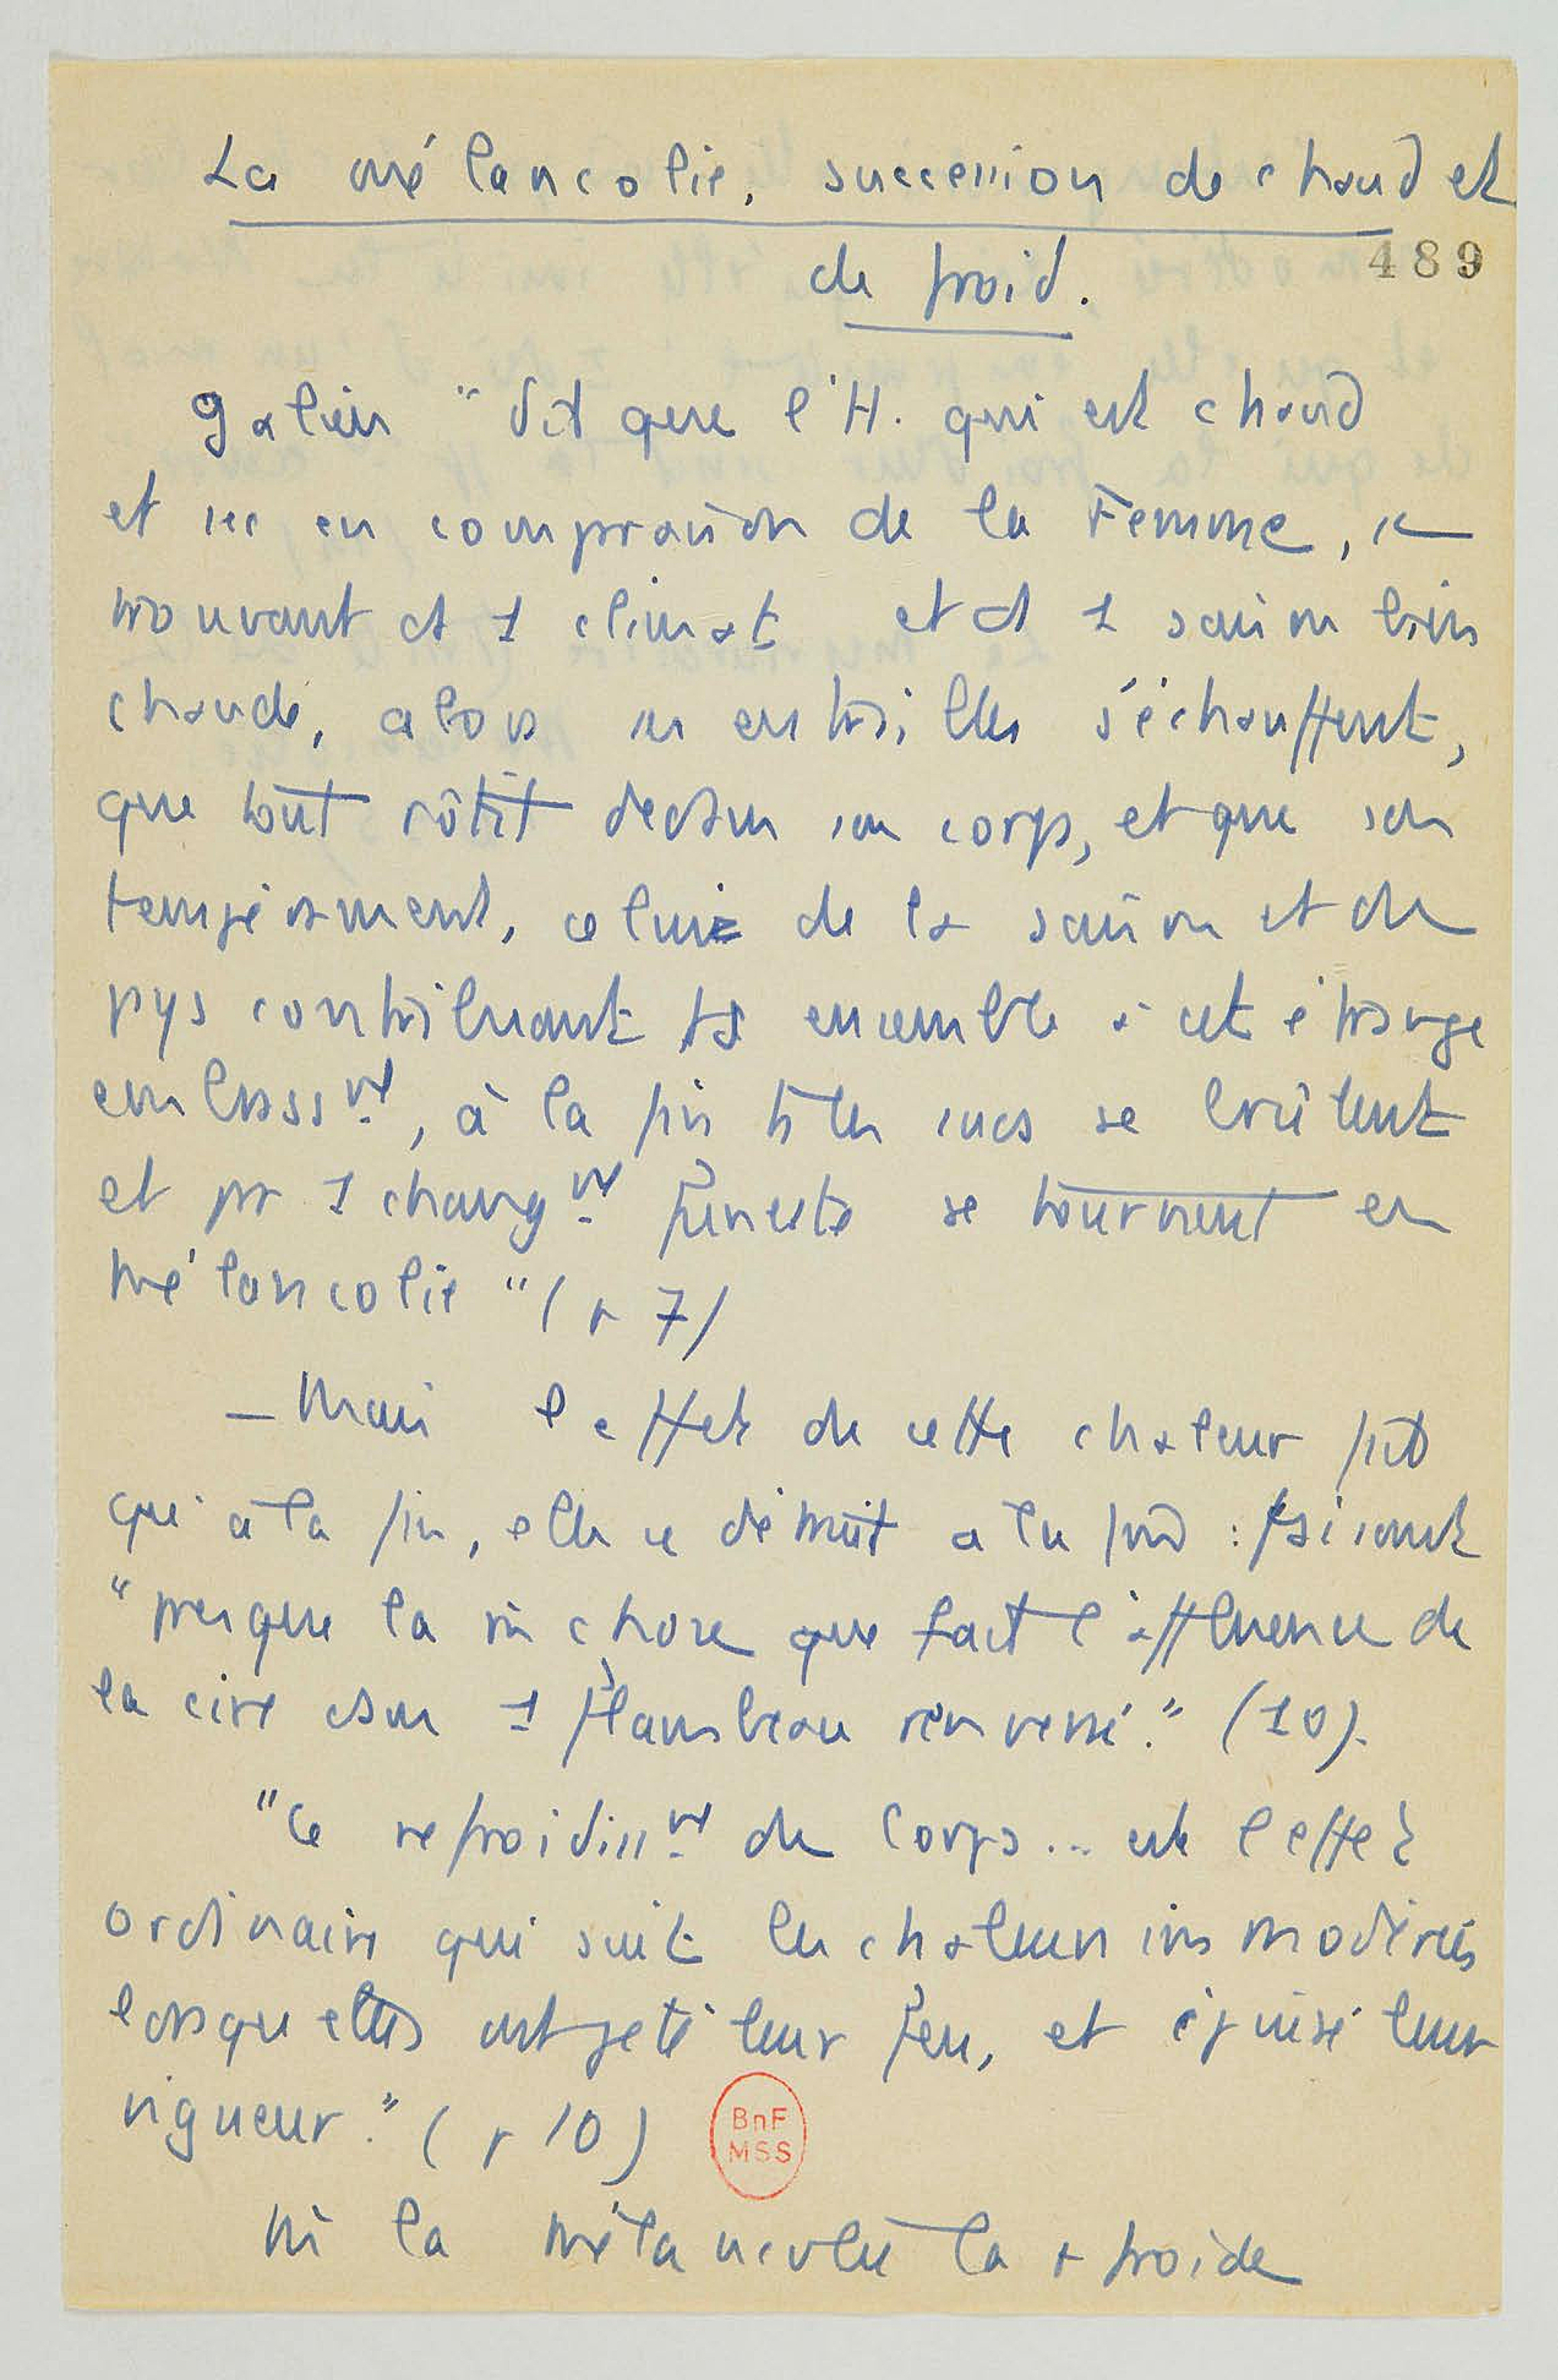 La mélancolie, succession de chaud et
de froid.
489
Galien "dit que l'H. qui est chaud
et sec en comparaison de la Femme, se
trouvant ds 1 climat et ds 1 saison bien
chaude, alors ses entrailles s'échauffent,
que tout rôtit dedans son corps, et que son
tempérament, celui de la saison et du
pays contribuant ts ensemble à cet étrange
embrassmt, à la fin ts les sucs se brûlent
et par 1 changmt funeste se tournent en
mélancolie" (p 7)
— Mais l'effet de cette chaleur fait
qu'à la fin, elle se détruit elle :
"presque la m chose que fait l'affluence de
la cire dans 1 flambeau renversé." (10).
"Ce refroidissmt du Corps... est l'effet
ordinaire qui suit les chaleurs immodérées
lorsqu'elles ont jeté leur feu, et épuisé leur
vigueur." (p 10)
BnF
MSS
m la mélancolie la + froide